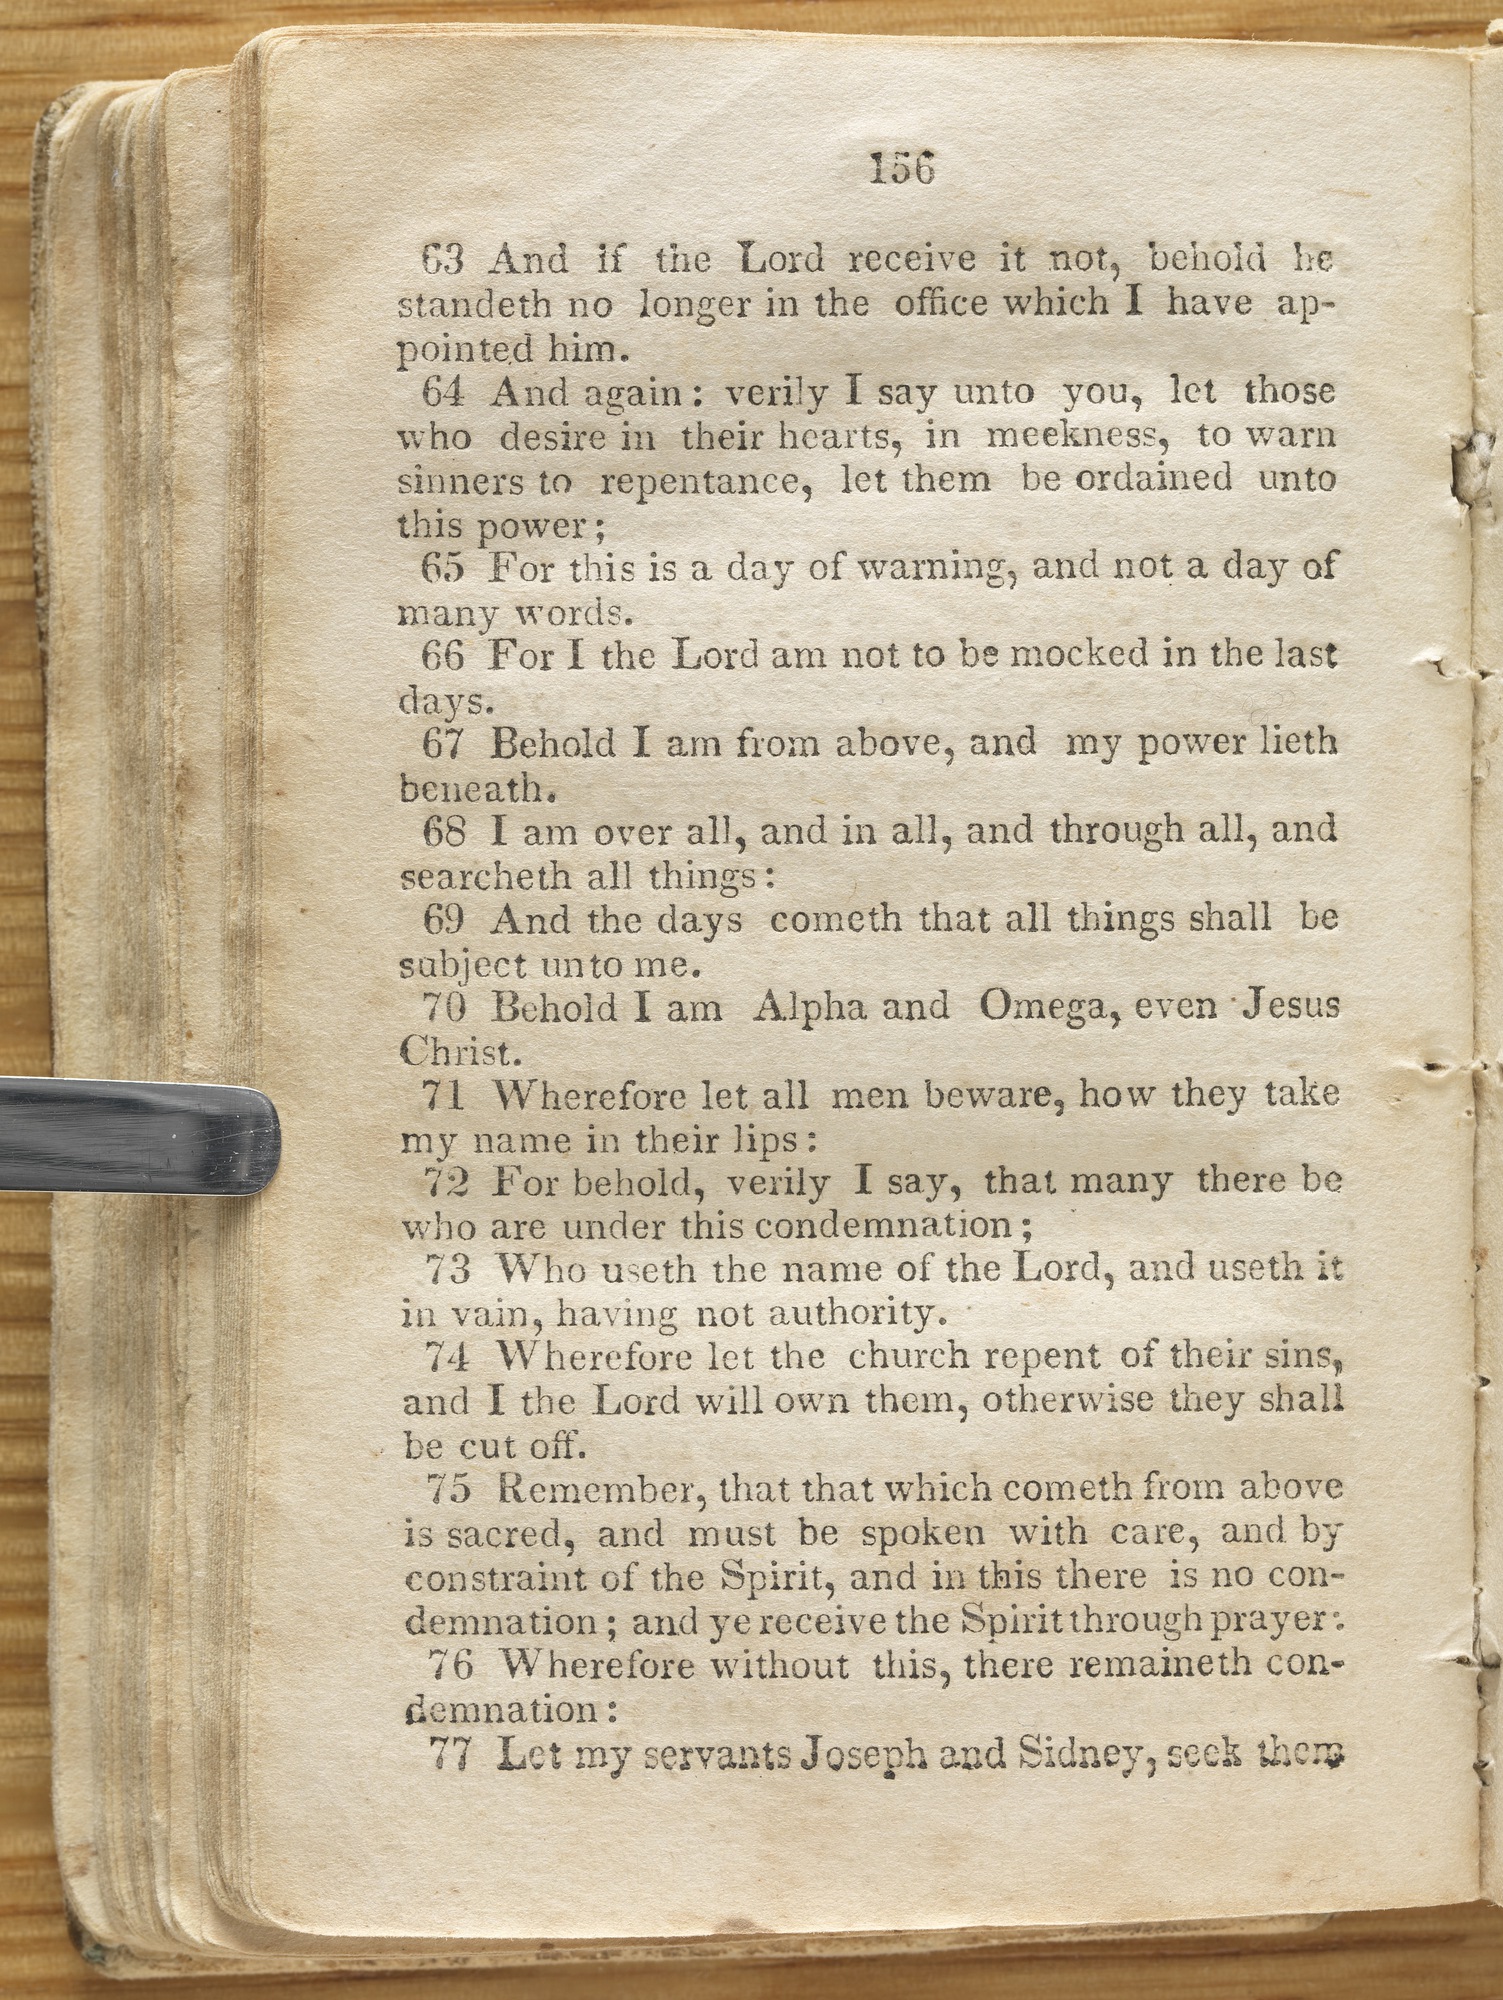 156
63 And if the Lord receive it not, behold he
standeth no longer in the office which I have ap-
pointed him.
64 And again: verily I say unto you, let those
who desire in their hearts, in meekness, to warn
sinners to repentance, let them be ordained unto
this power;
65 For this is a day of warning, and not a day of
many words.
66 For I the Lord am not to be mocked in the last
days.
67 Behold I am from above, and my power lieth
beneath.
68 I am over all, and in all, and through all, and
searcheth all things:
69 And the days cometh that all things shall be
subject unto me.
70 Behold I am Alpha and Omega, even Jesus
Christ.
71 Wherefore let all men beware, how they take
my name in their lips:
72 For behold, verily I say, that many there be
who are under this condemnation;
73 Who useth the name of the Lord, and useth it
in vain, having not authority.
74 Wherefore let the church repent of their sins,
and I the Lord will own them, otherwise they shall
be cut off.
75 Remember, that that which cometh from above
is sacred, and must be spoken with care, and by
constraint of the Spirit, and in this there is no con-
demnation; and ye receive the Spirit through prayer:
76 Wherefore without this, there remaineth con-
demnation:
77 Let my servants Joseph and Sidney, seek them